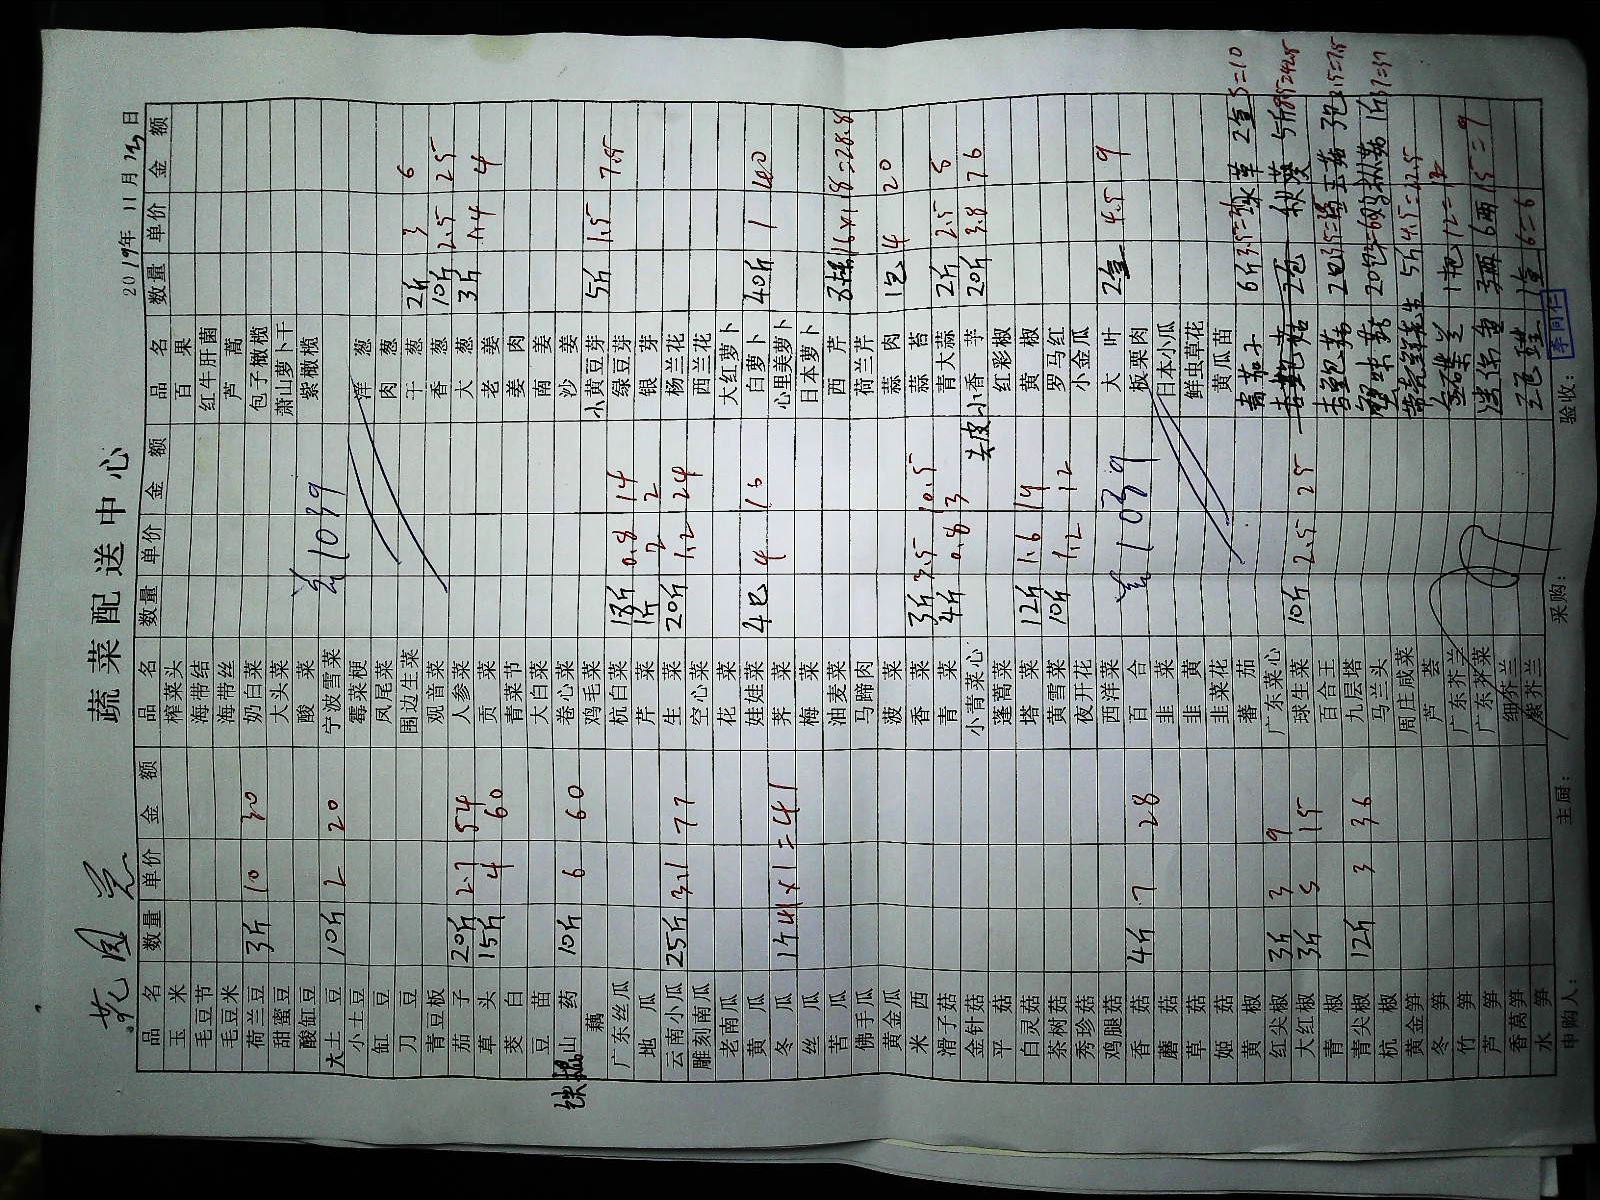 苑国宴 蔬菜配送中心 2019年 11月 13日
品名 数量 单价 金额 品名 数量 单价 金额 品名 数量 单价 金额
玉米 榨菜头 百果
毛豆节 海带结 红牛肝菌
毛豆米 海带丝 芦蒿
荷兰豆 3斤 10 30 奶白菜 包子橄榄
甜蜜豆 大头菜 萧山萝卜干
酸缸豆 酸菜 紫橄榄
大土豆 10斤 2 20 宁波雪菜 1039
小土豆 霉菜梗 洋葱
缸豆 凤尾菜 肉葱
刀豆 围边生菜 干葱 2斤 3 6
青豆板 观音菜 香葱 10斤 2.5 25
茄子 20斤 2.7 54 人参菜 大葱 3斤 1.4 4
草头 15斤 4 60 贡菜 老姜
茭白 青菜节 姜肉
豆苗 大白菜 南姜
铁棍山药 10斤 6 60 卷心菜 沙姜
藕 鸡毛菜 小黄豆芽 5斤 1.5 7.5
广东丝瓜 杭白菜 18斤 0.8 14 绿豆芽
地瓜 芹菜 1斤 2 2 银芽
云南小瓜 25斤 3.1 77 生菜 20斤 1.2 24 杨兰花
雕刻南瓜 空心菜 西兰花
老南瓜 花菜 大红萝卜
黄瓜 娃娃菜 4包 4 16 白萝卜 40斤 1 40
冬瓜 1个41×1=41 荠菜 心里美萝卜
丝瓜 梅菜 日本萝卜
苦瓜 油麦菜 西芹 16×1.8=28.8
佛手瓜 马蹄肉 荷兰芹
黄金瓜 菠菜 蒜肉 1包 4 20
米西 香菜 3斤 3.5 10.5 蒜苔
滑子菇 青菜 4斤 0.8 3 青大蒜 2斤 2.5 5
金针菇 小青菜心 去皮小香芋 20斤 3.8 76
平菇 蓬蒿菜 红彩椒
白灵菇 塔菜 12斤 1.6 19 黄椒
茶树菇 黄雪菜 10斤 1.2 12 罗马红
秀珍菇 夜开花 小金瓜
鸡腿菇 西洋菜 1039 大叶 2盒 4.5 9
香菇 4斤 7 28 百合 板栗肉
蘑菇 韭菜 日本小瓜
草菇 韭黄 鲜虫草花
姬菇 韭菜花 黄瓜苗
黄椒 蕃茄 青茄子 6斤 2盒5=10
红尖椒 3斤 3 9 广东菜心 2包 秋葵 5斤
大红椒 3斤 5 15 球生菜 10斤 2.5 25 2包 3包2.5=7.5
青椒 百合王
青尖椒 12斤 3 36 九层塔 5斤4.5=22.5
杭椒 马兰头 1把12=12
黄金笋 周庄咸菜 6两15=9
冬笋 芦荟 1盒6=6
竹笋 广东芥兰
芦笋 广东芥菜
香莴笋 细芥兰
水笋 紫芥兰
申购人: 主厨: 采购: 验收: 李同仁